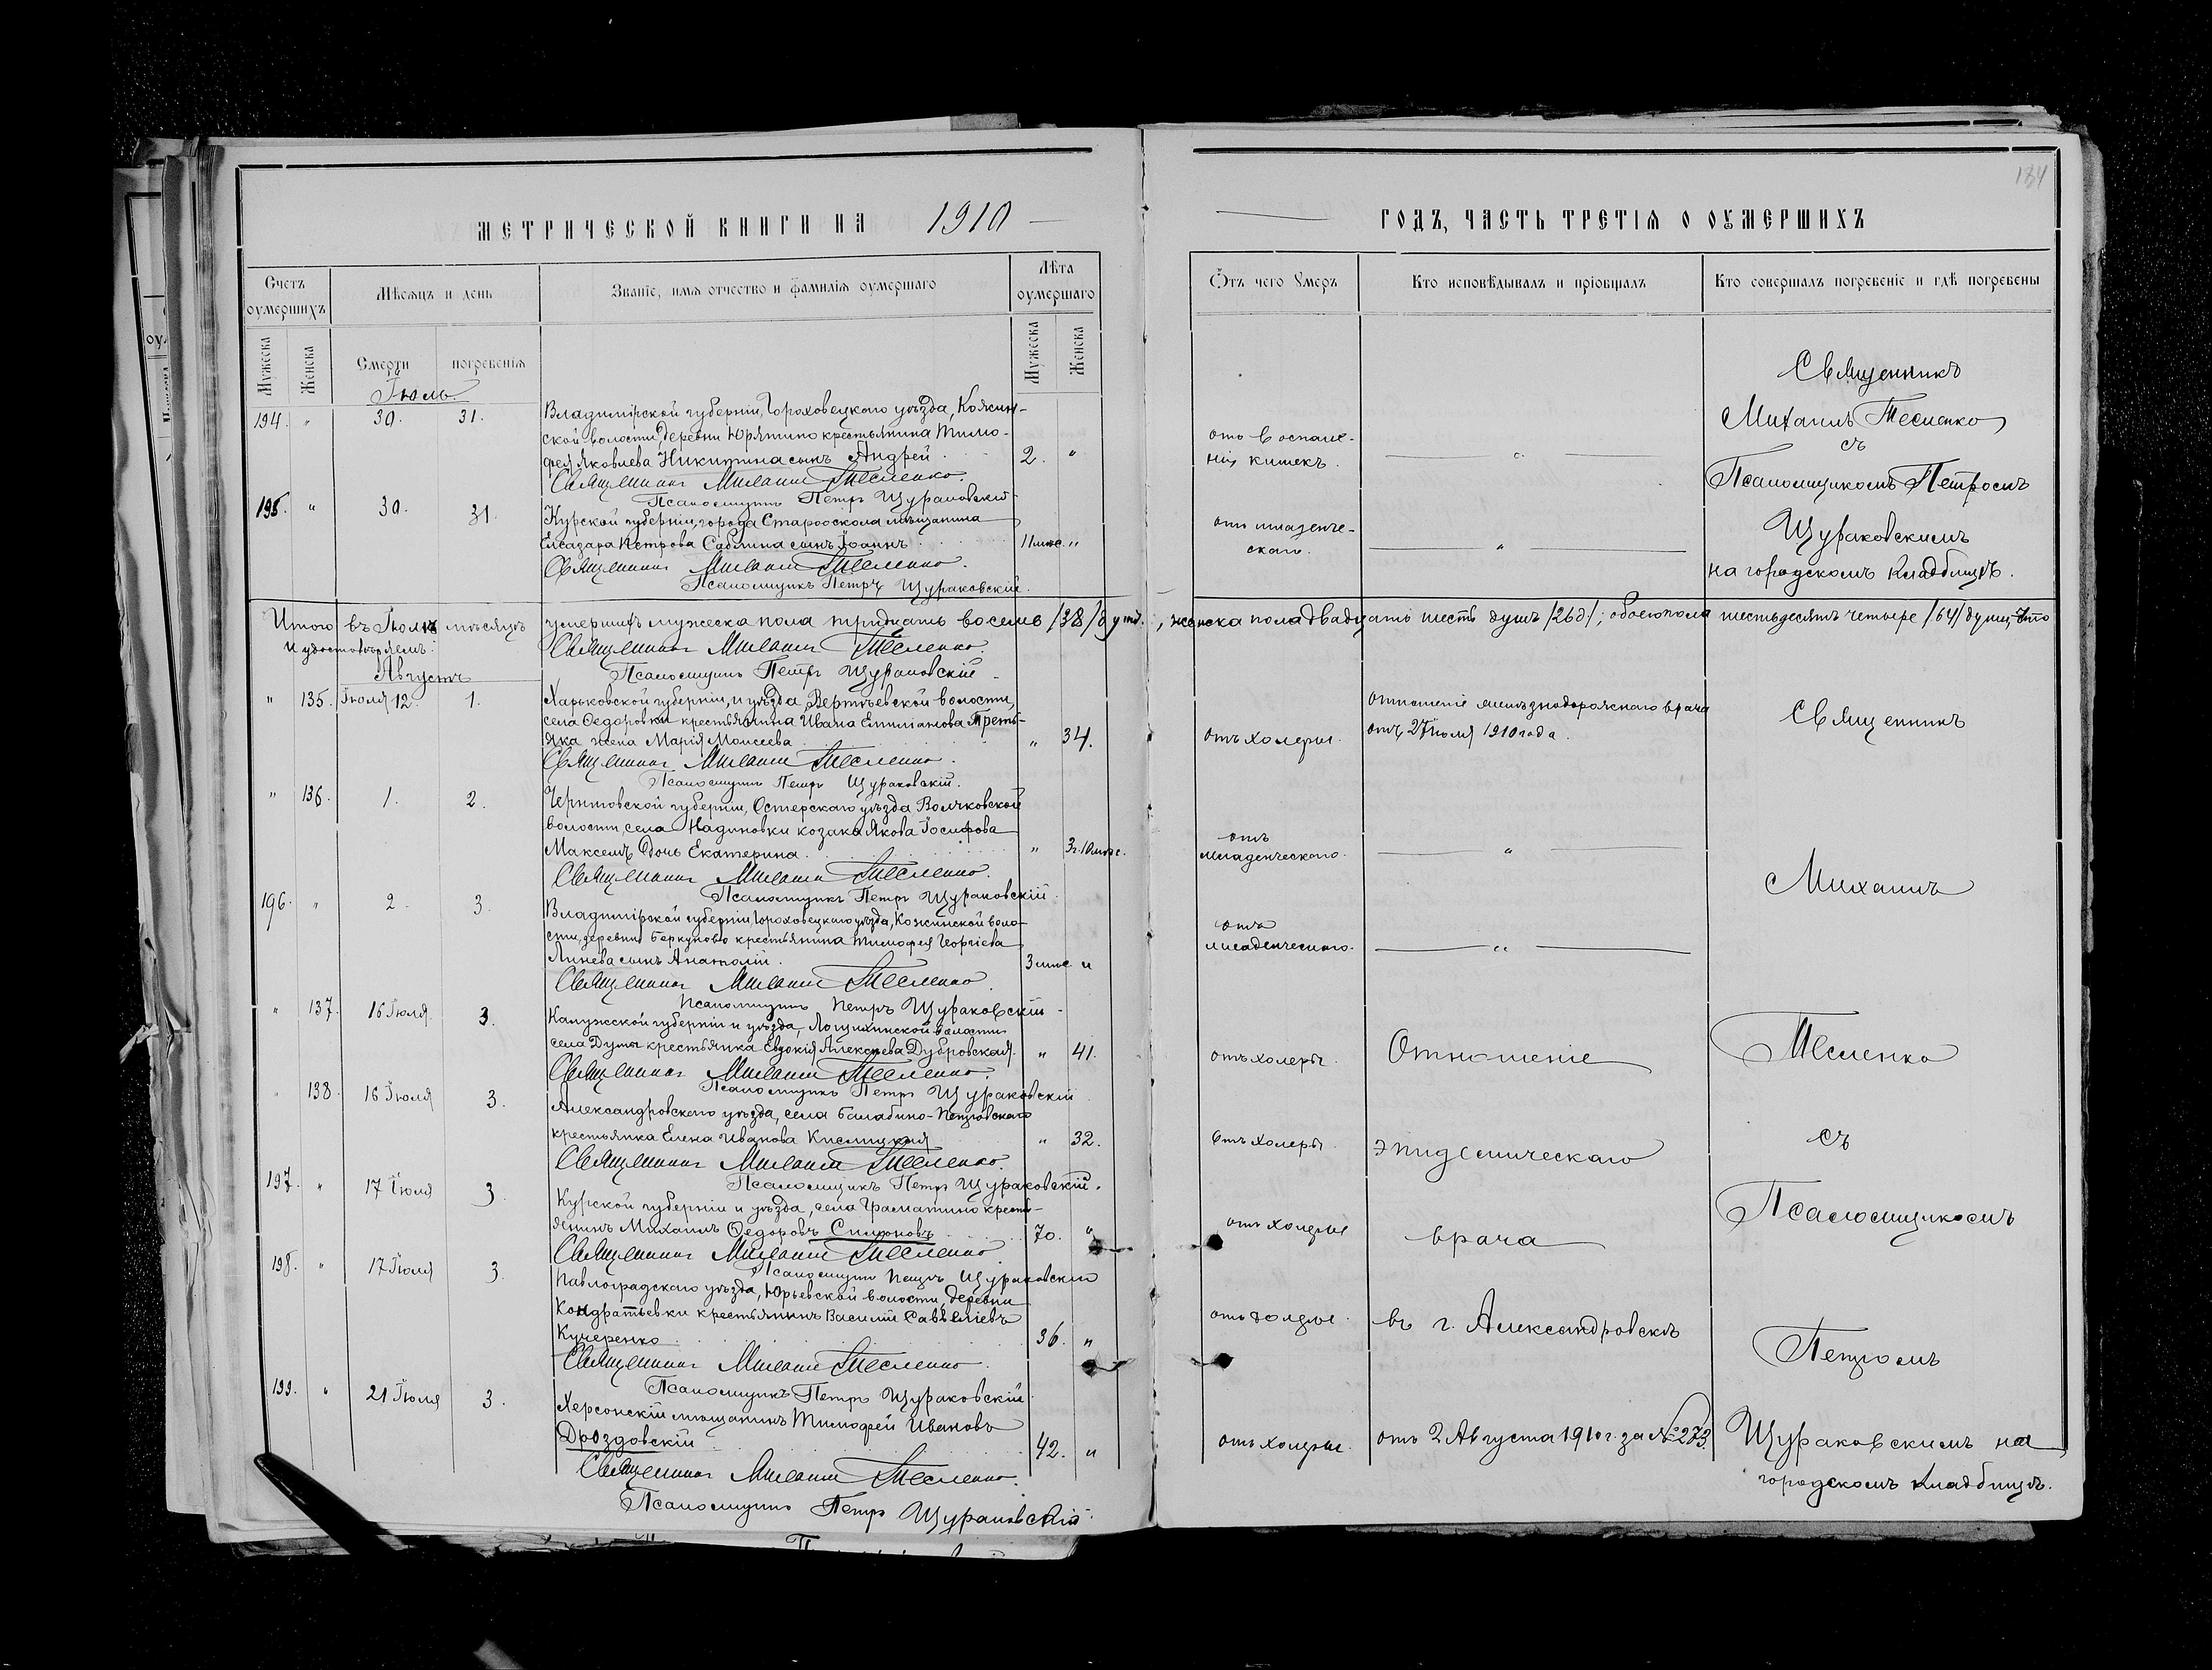 МЕТРИЧЕСКОЙ КНИГИ НА 1910
Счетъ оумершихъ
Мѣсяцъ и день
Званіе, имя отчество и фамилія оумершаго
Лѣта оумершаго
Мужеска
Женска
Смерти
погребенія
Мужеска
Женска
Іюль.
194. " 30. 31.
Владимірской губерніи, Гороховецкого уѣзда, Кожин-
ской волости, деревни Юрятино крестьянина Тимо-
фея Яковлева Никитина сынъ Андрей 2. "
Священникъ Михаилъ Тесленко.
Псаломщикъ Петръ Щураковскій
195. " 30. 31.
Курской губерніи, города Староскола мѣщанина
Елеазара Петрова Саблина сынъ Іоаннъ 11 мѣс. "
Священникъ Михаилъ Тесленко.
Псаломщикъ Петръ Щураковскій.
Итого въ Іюлѣ мѣсяцѣ умершихъ мужеска пола тридцать восемь /38/ душъ
И удостовѣряемъ.
Священникъ Михаилъ Тесленко.
Псаломщикъ Петръ Щураковскій
Августъ
" 135. Іюля 12. 1.
Харьковской губерніи, и уѣзда, Вертѣевской волости,
села Федоровки крестьянина Ивана Емиліанова Треть-
яка жена Марія Моисеева " 34.
Священникъ Михаилъ Тесленко.
Псаломщикъ Петръ Щураковскій.
" 136. 1. 2.
Черниговской губерніи, Остерскаго уѣзда
волости, села Надиновки козака Якова Іосифова
Максемъ дочь Екатерина. " 3г. 10 мѣс.
Священникъ Михаилъ Тесленко.
Псаломщикъ Петръ Щураковскій.
196. " 2. 3.
Владимірской губерніи, Гороховецкаго уѣзда, Кожинской воло-
сти, деревни Беркуново крестьянина Тимофея Георгіева
Линева сынъ Анатолій. 3 мѣс "
Священникъ Михаилъ Тесленко.
Псаломщикъ Петръ Щураковскій
" 137. 16 Іюля. 3.
Калужской губерніи и уѣзда, волости
села крестьянка Евдокія Алексѣева Дубровская. " 41.
Священникъ Михаилъ Тесленко.
Псаломщикъ Петръ Щураковскій
" 138. 16 Іюля 3.
Александровскаго уѣзда, села Балабино-Петровскаго
крестьянка Елена Иванова Кислицкая " 32.
Священникъ Михаилъ Тесленко.
Псаломщикъ Петръ Щураковскій.
197. " 17 Іюля 3.
Курской губерніи и уѣзда, села Граматино кресть-
янинъ Михаилъ Федоровъ Симоновъ 70. "
Священникъ Михаилъ Тесленко
Псаломщикъ Петръ Щураковскій
198. " 17 Іюля 3.
Павлоградскаго уѣзда, Юрьевской волости, деревни
Кондратьевки крестьянинъ Василій Савеліевъ
Кучеренко 36. "
Священникъ Михаилъ Тесленко.
Псаломщикъ Петръ Щураковскій
199. " 21 Іюля 3.
Херсонскій мѣщанинъ Тимофей Ивановъ
Дроздовскій 42. "
Священникъ Михаилъ Тесленко.
Псаломщикъ Петръ Щураковскій.
134
ГОДЪ, ЧАСТЬ ТРЕТІЯ О ОУМЕРШИХЪ
Отъ чего Умеръ
Кто исповѣдывалъ и пріобщалъ
Кто совершалъ погребеніе и гдѣ погребены
отъ воспале-
нія кишекъ.
отъ младенче-
скаго.
Священникъ
Михаилъ Тесленко
съ
Псаломщикомъ Петромъ
Щураковскимъ
на городскомъ кладбищѣ.
, женска пола двадцать шесть душъ /26д/; обоего пола шестьдесятъ четыре /64/ души, что
отъ холеры.
отношеніе желѣзнодорожнаго врача
отъ 27 Іюля 1910 года.
отъ
младенческаго.
отъ
младенческаго.
отъ холеры.
отъ холеры.
отъ холеры
отъ холеры.
отъ холеры.
Отношеніе
эпидемическаго
врача
въ г. Александровскѣ
отъ 2 Августа 1910 г. за № 273.
Священникъ
Михаилъ
Тесленко
съ
Псаломщикомъ
Петромъ
Щураковскимъ на
городскомъ кладбищѣ.